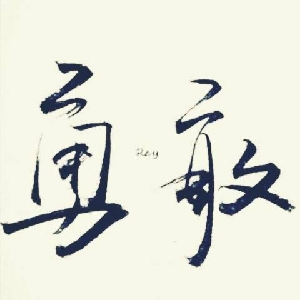 勇敢
Ray